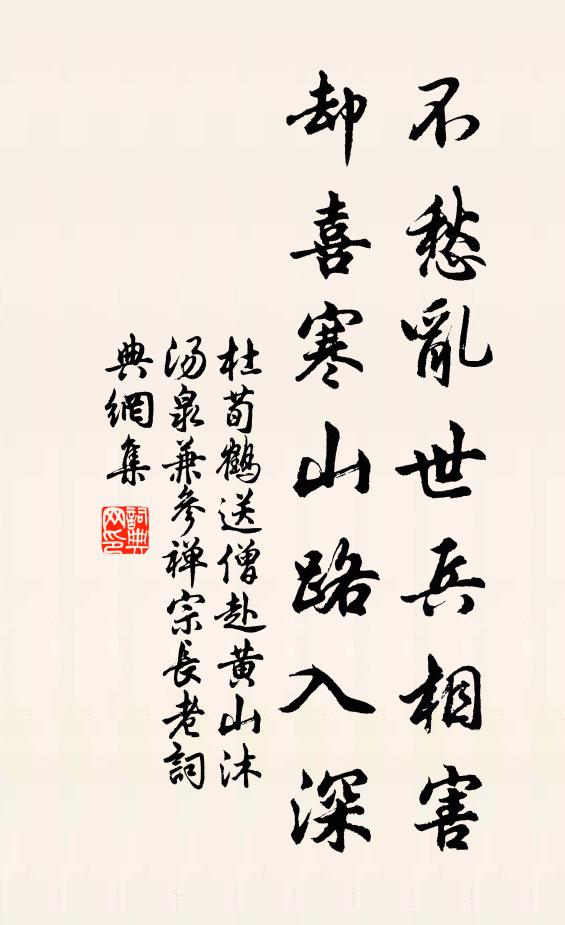 不愁亂世兵相害
却喜寒山路入深
杜荀鶴送僧赴黄山沐
湯泉兼參禅宗長老詞
典網集
詞典
网印